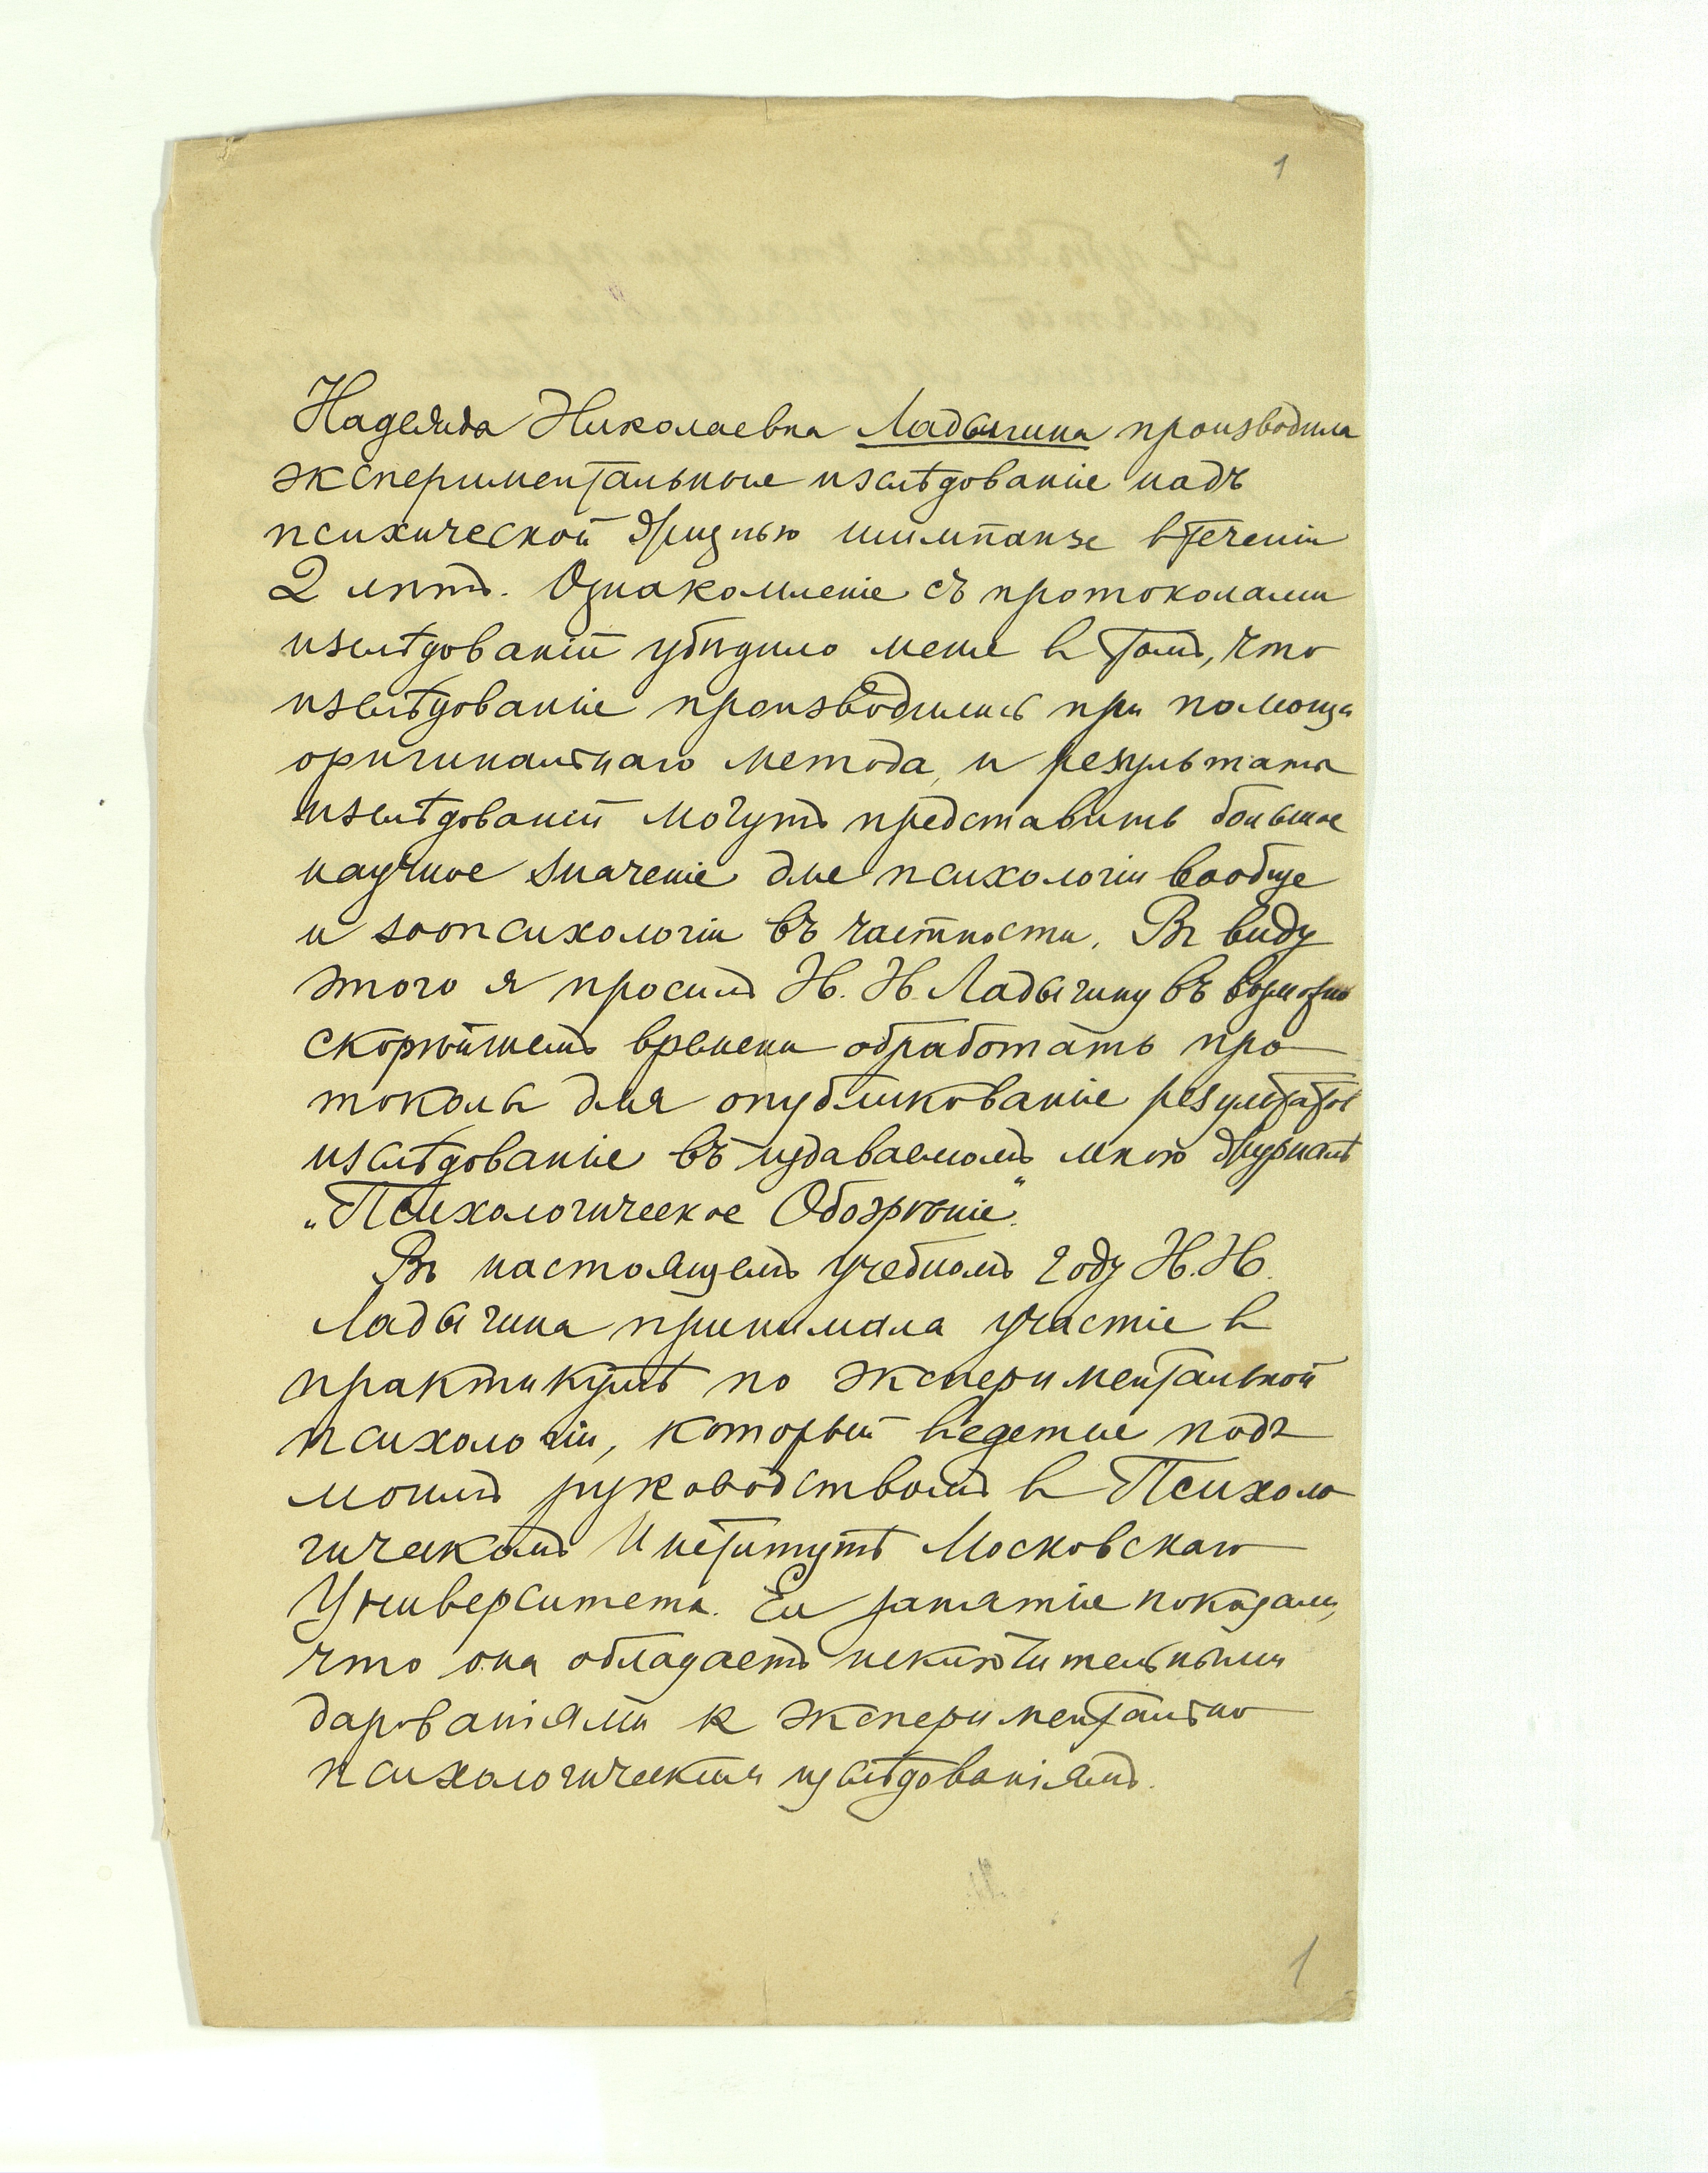 1
Надежда Николаевна Ладыгина производила
экспериментальные изслѣдованія надъ
психической жизнью шимпанзе втеченіи
2 лѣтъ. Ознакомленіе съ протоколами
изслѣдованій убѣдило меня в томъ, что
изслѣдованія производились при помощи
оригинальнаго метода, и результаты
изслѣдованій могутъ представить большое
научное значеніе для психологіи вообще
и зоопсихологіи въ частности. Въ виду
этого я просилъ Н. Н. Ладыгину въ возможно
скорѣйшемъ времени обработать про
токолы для опубликованія результатов
изслѣдованія въ издаваемомъ мною журналѣ
„Психологическое Обозрѣніе".
Въ настоящемъ учебномъ году Н. Н.
Ладыгина принимала участіе в
практикумѣ по экспериментальной
психологіи, который ведется подъ
моимъ руководствомъ в Психоло
гическомъ Институтѣ Московскаго
Университета. Ея занятія показали,
что она обладаетъ исключительными
дарованіями к экспериментально
психологическимъ изслѣдованіямъ.
1